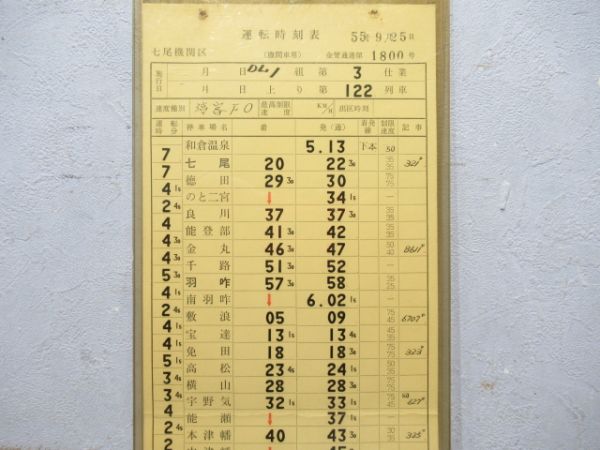 運転時刻表 55年9月25日
七尾機関区 (機関車号) 金管運達第1800号
施行日 月 日 組 第 3 仕業
月 日 上り 第 122 列車
速度種別 最高制限速度 KM/H 出区時刻
運転時分 停車場名 着 発(通) 着発線 制限速度 記事
和倉温泉 5.13 下本 50
7
七尾 20 22 30 35 35 321
7
徳田 29 30 30 75 75
4 1s
のと二宮 ↓ 34 1s —
2 4s
良川 37 37 30 35 35
4
能登部 41 30 42 35 35
4 30
金丸 46 30 47 50 40
4 30
千路 51 30 52
5 30
羽咋 57 30 58 35 25
4 1s
南羽咋 ↓ 6.02 1s —
2 4s
敷浪 05 09 75 45
4 1s
宝達 13 1s 13 4s
4
免田 18 18 30 323
高松 23 4s 24 1s
横山 28 28 30
3 4s
宇野気 32 1s 33 1s
4
能瀬 ↓ 37 1s —
2
本津幡 40 43 30 35 35 325
2